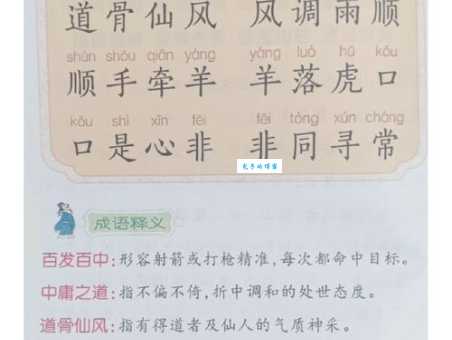 道骨仙风 风调雨顺
shùn shǒu qiān yáng yáng luò hǔ kǒu
顺手牵羊 羊落虎口
kǒu shì xīn fēi fēi tóng xún cháng
口是心非 非同寻常
成语释义
百发百中:形容射箭或打枪精准,每次都命中目标。
中庸之道:指不偏不倚,折中调和的处世态度。
道骨仙风:指有得道者及仙人的气质神采。